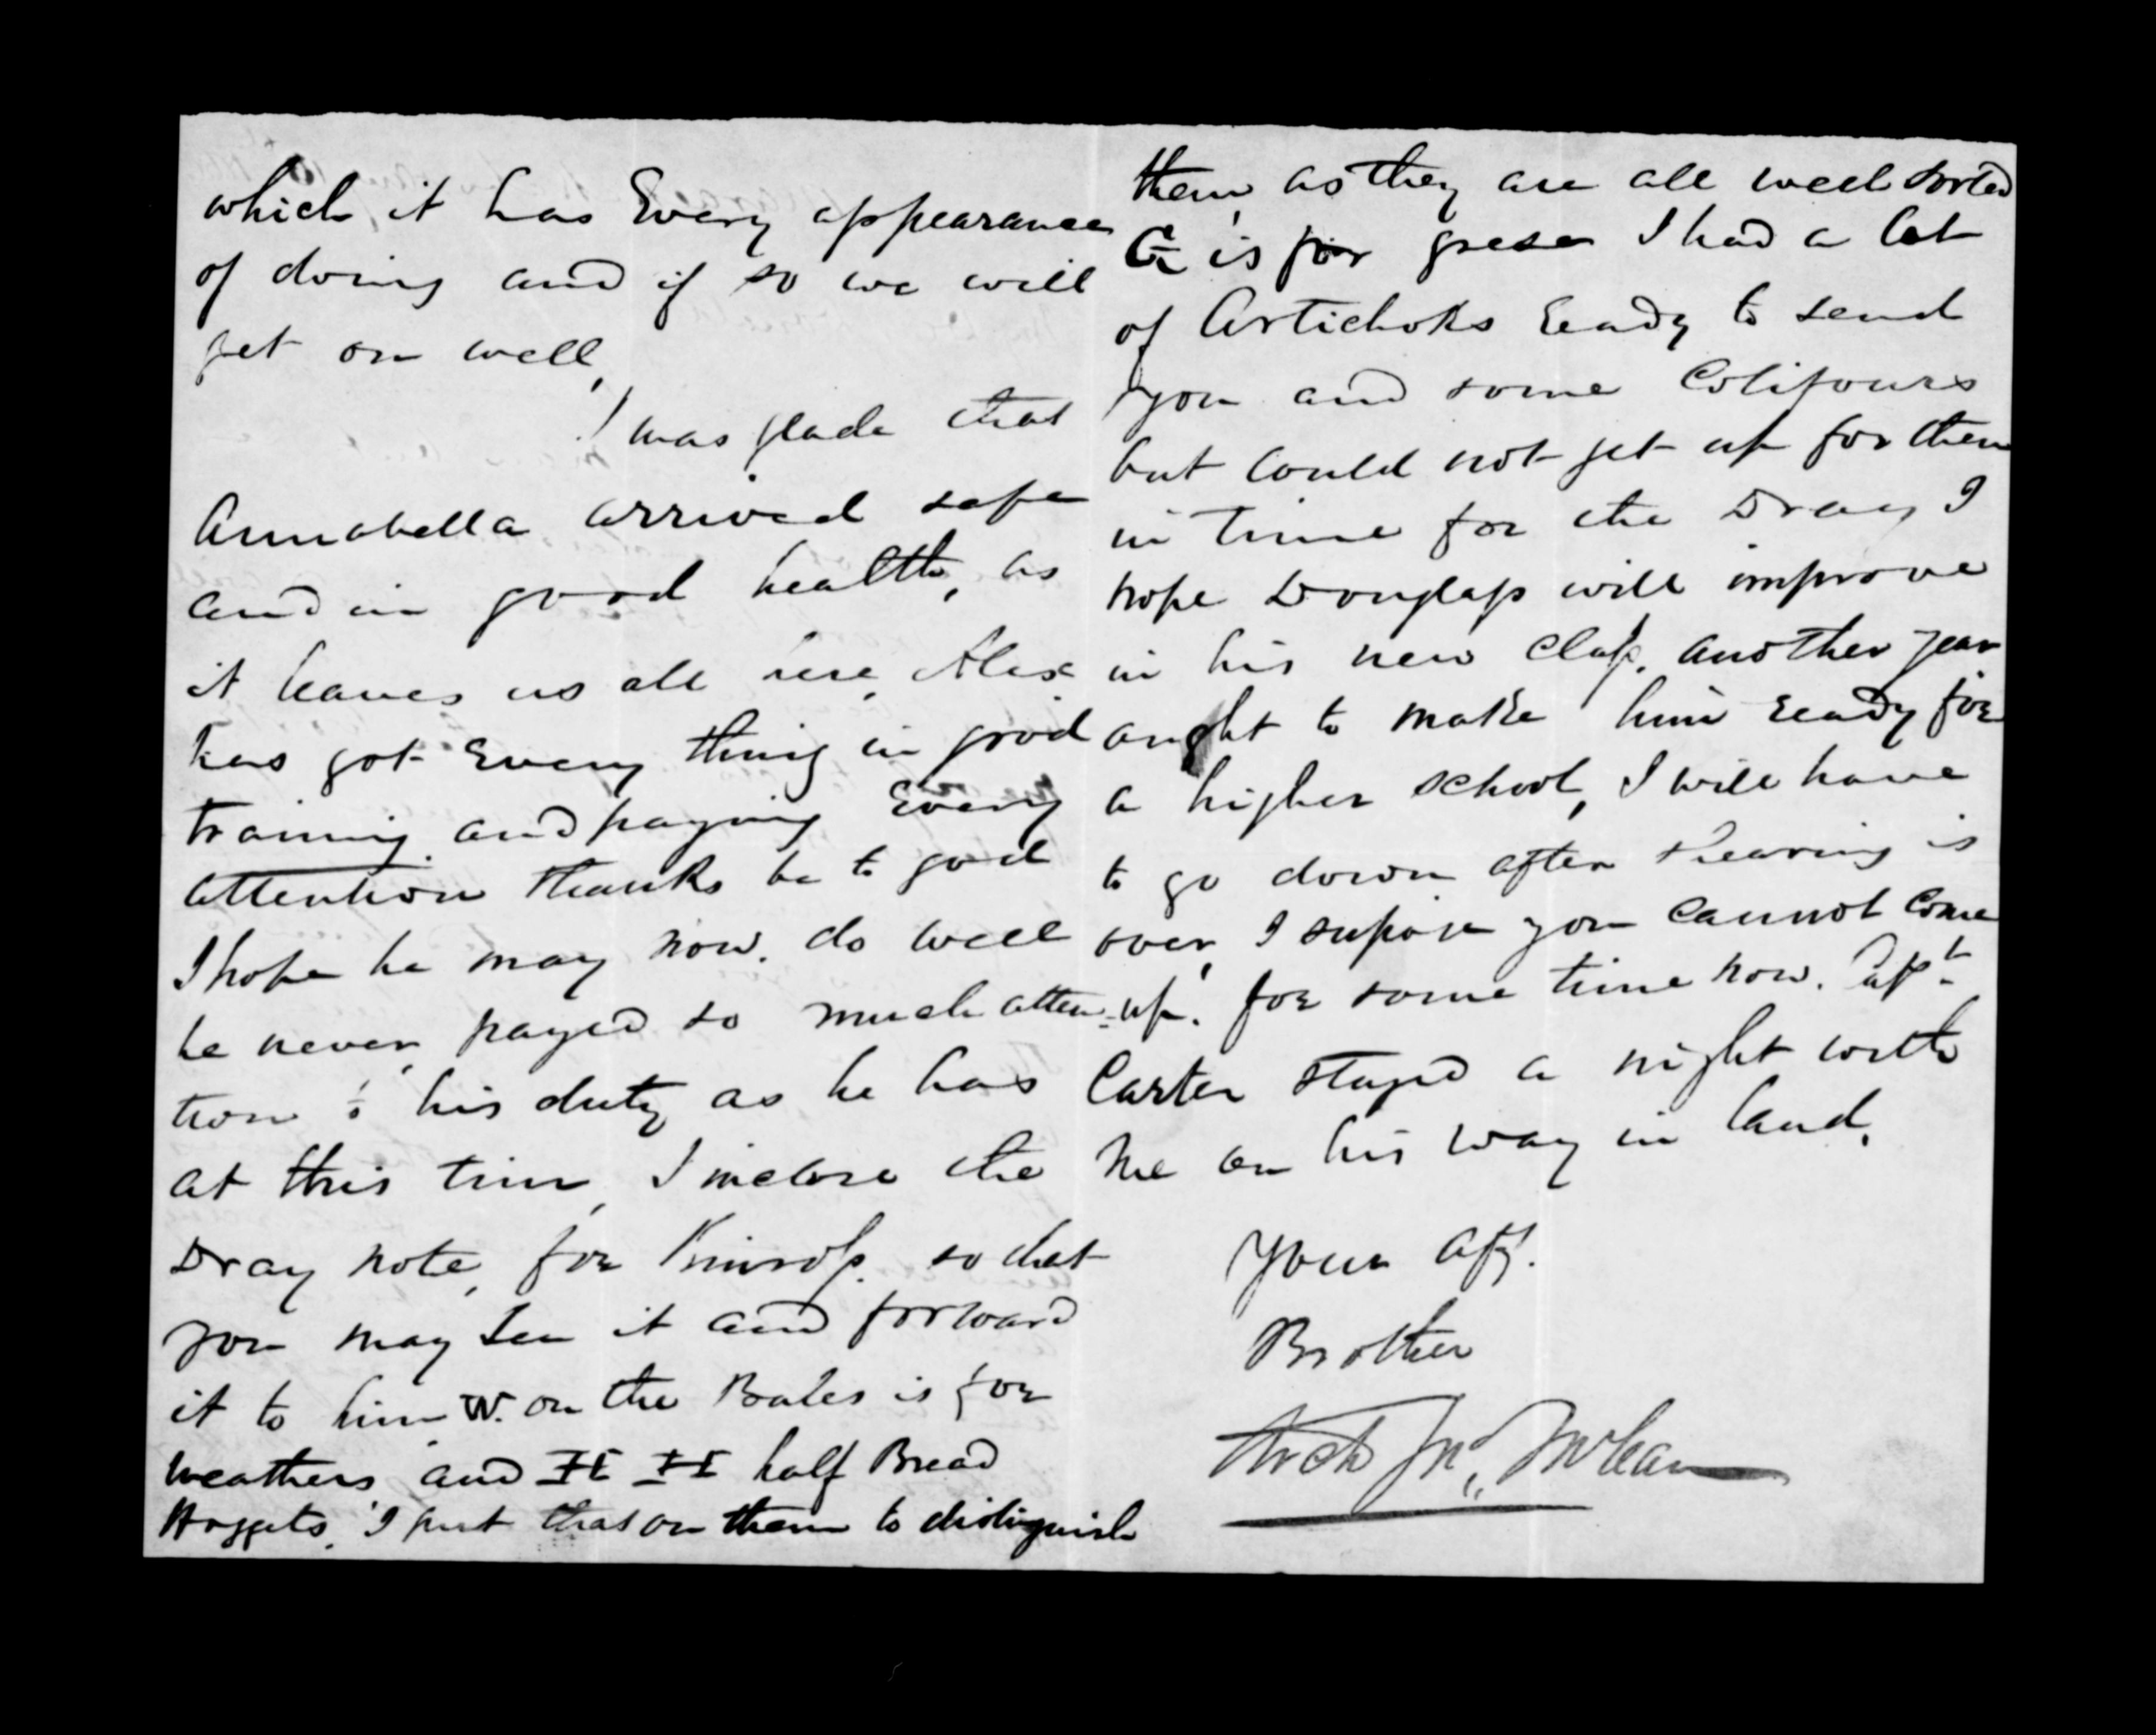 which it has Every appearance
of doing and if so we will
get on well,
I was glade that
Annabella arrived safe
and in good health, as
it leaves us all here, Alex
has got Every thing in good
training and paying Every
attention thanks be to god
I hope he may now. do well
he never payed so much atten-
tion to his duty as he has
at this time, I inclose the
Dray note, for Kinross. so that
you may see it and forward
it to him, W. on the Bales is for
weathers and H H half Bread
Hoggets, I put that on them to distinguish
them, as they are all well sorted
G is for grese I had a lot
of Artichoks ready to send
you and some Colifours
but could not get up for them
in time for the Dray, I
hope Douglass will improve
in his new class, another year
aught to make him ready for
a higher school, I will have
to go down after shearing is
over, I supose you cannot come
up. for some time now. Capt.
Carter stayed a night with
me on his way in land,
Your aff.
Brother
Arch Jn. McLean